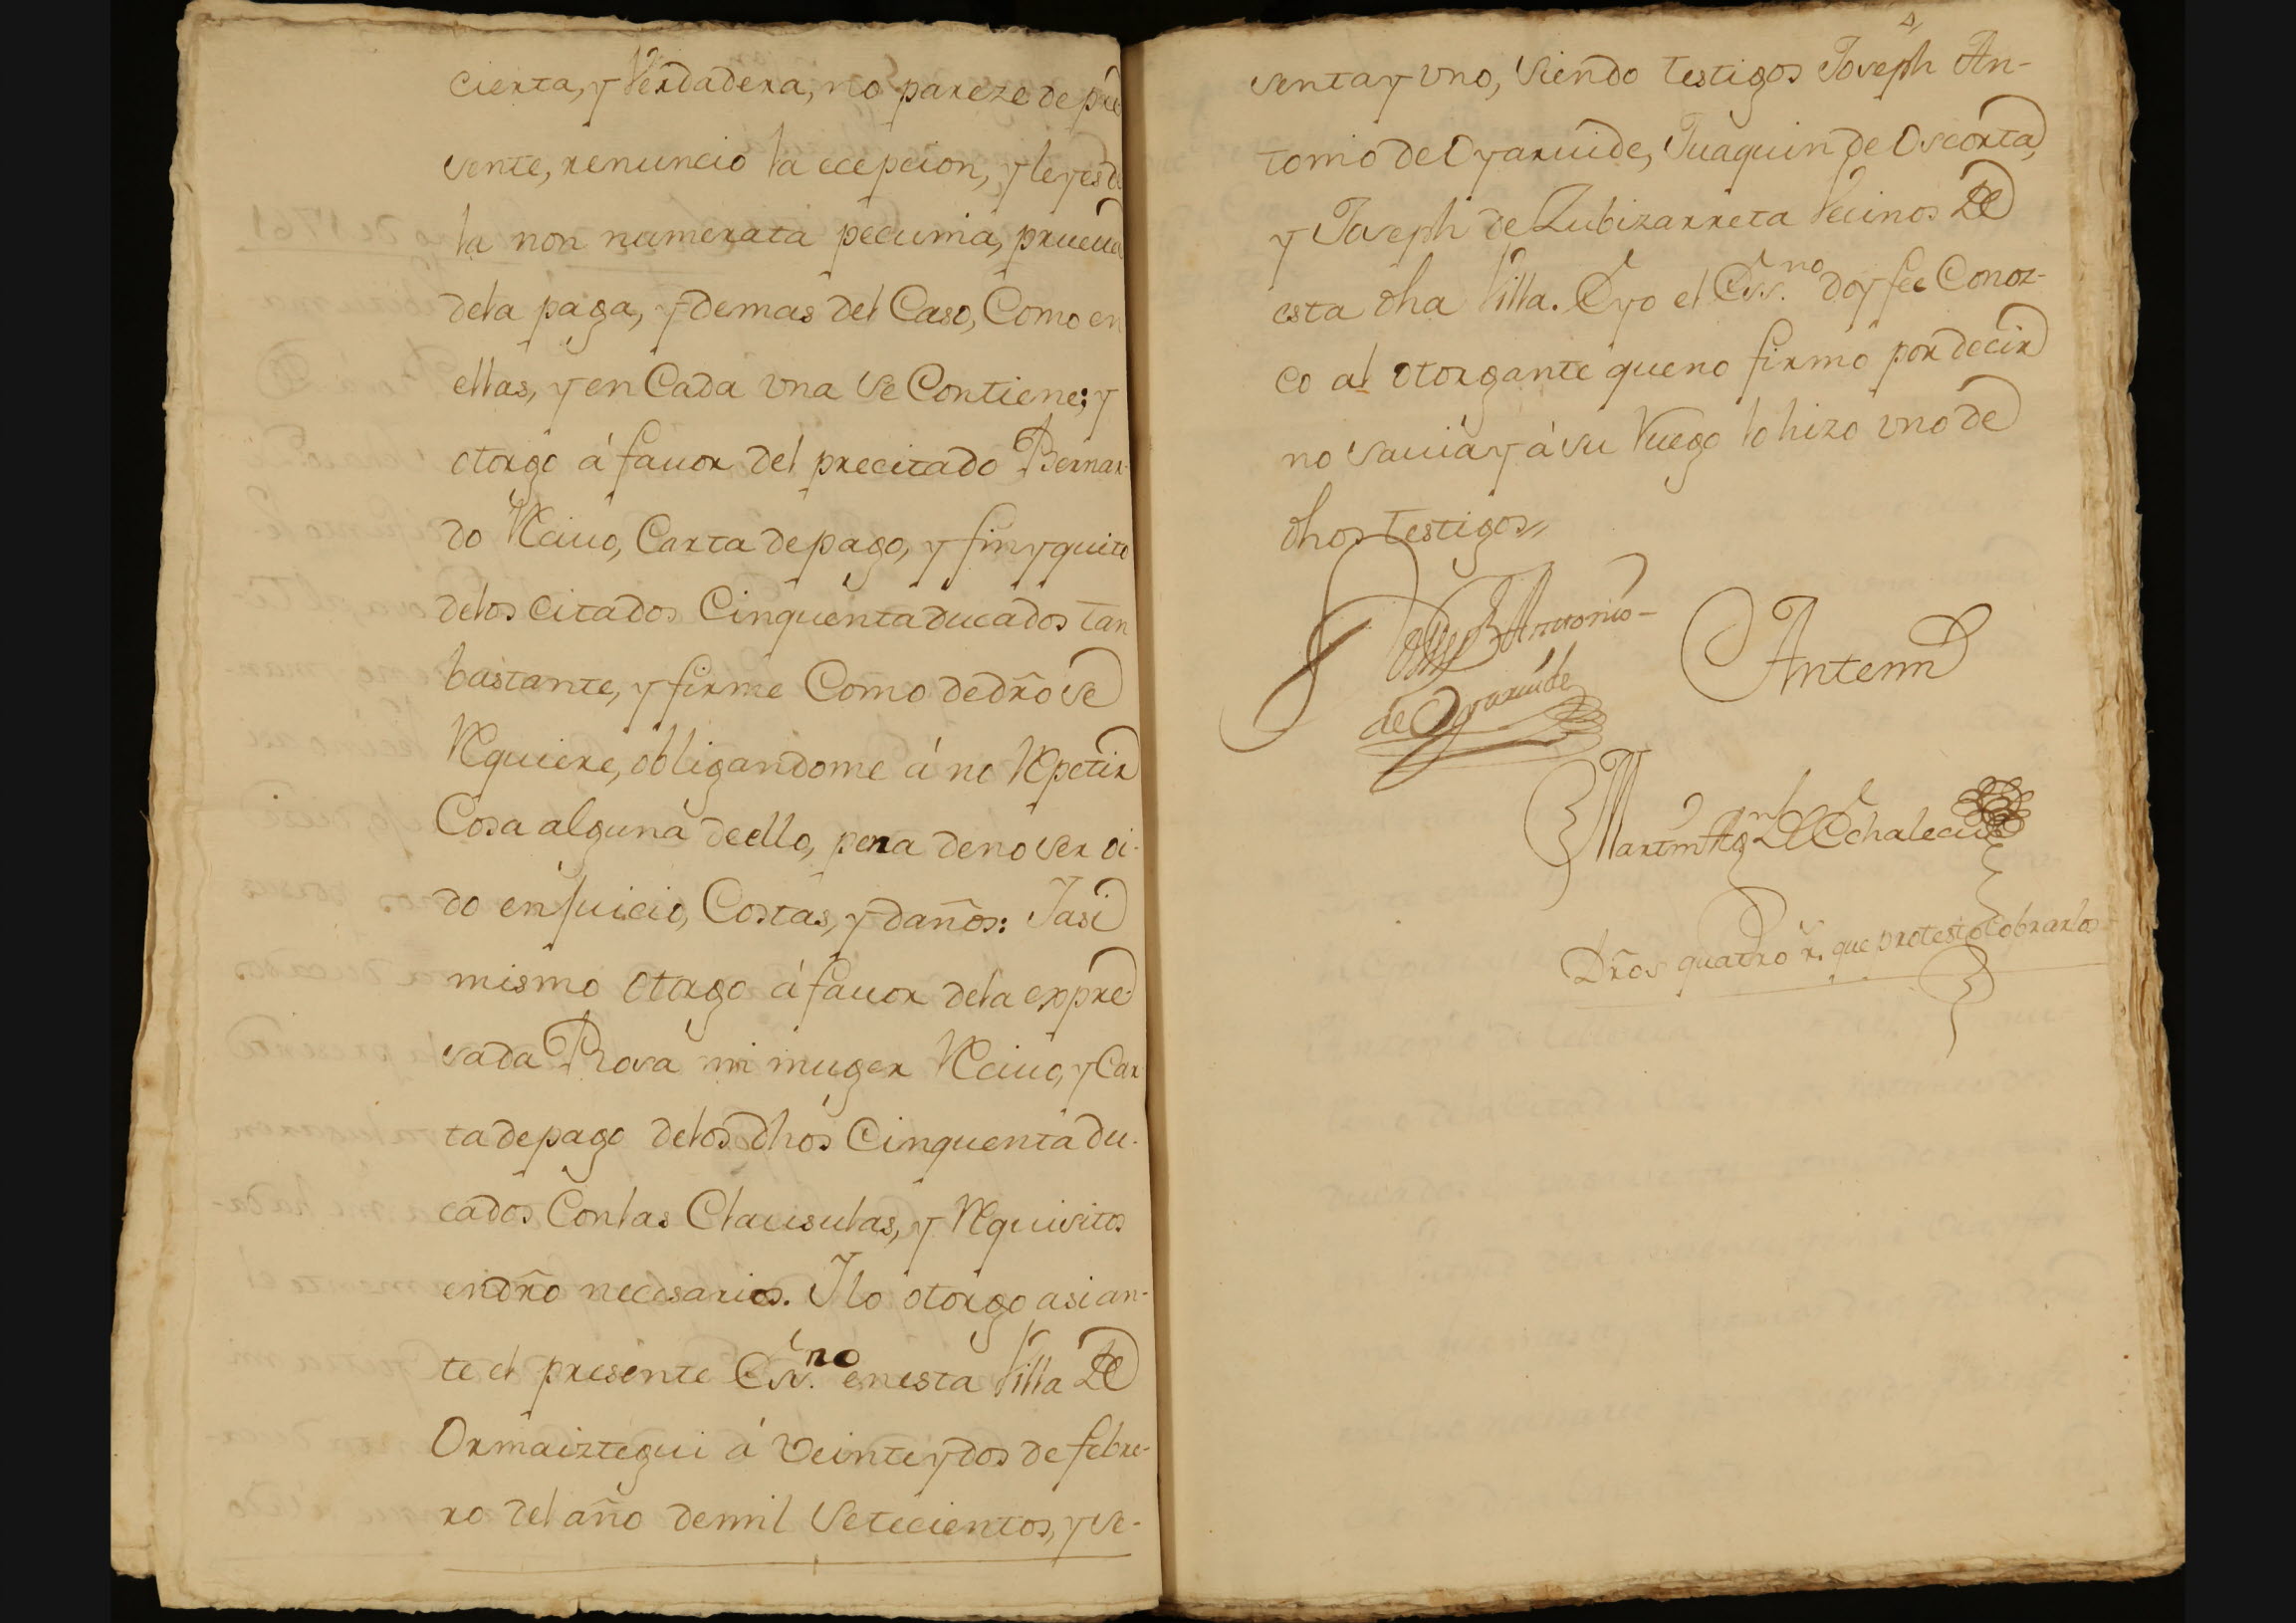 cierta, y Verdadera, no pareze de pre
sente, renuncio la ecepcion, y leyes de
la non numerata pecunia, prueua
dela paga, y demas del Caso, Como en
ellas, y en Cada vna se Contiene; y
otorgo á fauor del precitado Bernar-
do Reciuo, Carta de pago, y finyquito
delos citados Cinquenta ducados tan
bastante, y firme Como de dr̃o se
Requiere, obligandome á no Repetir
Cosa alguna deello, pena de no ser oi-
do en Juicio, Costas, y daños: Y asi
mismo otorgo á fauor dela expre
sada Rosa mi muger Reciuo, y Car
ta de pago delos dhos Cinquenta du-
cados Con las Clausulas, y Requisitos
en dr̃o necesarios. Y lo otorgo asi an-
te el presente Ess.no en esta Villa De
Ormaiztegui á Veinte y dos de febre-
ro del año de mil Setecientos, y se-
senta y vno, Siendo testigos Joseph An-
tonio de Oyaruide, Juaquin de Oscorta,
y Joseph de Zubizarreta Vecinos De
esta dha Villa. E yo el Ess.no doy fee Conoz-
co al otorgante que no firmó por decir
no sauia y á su Ruego lo hizo vno de
dhos testigos,,
Joseph Antonio
de Oyaruide
Antemi
Martin Ag.n De Echalecu
Dr̃os quatro r.s que protesto Cobrarlos